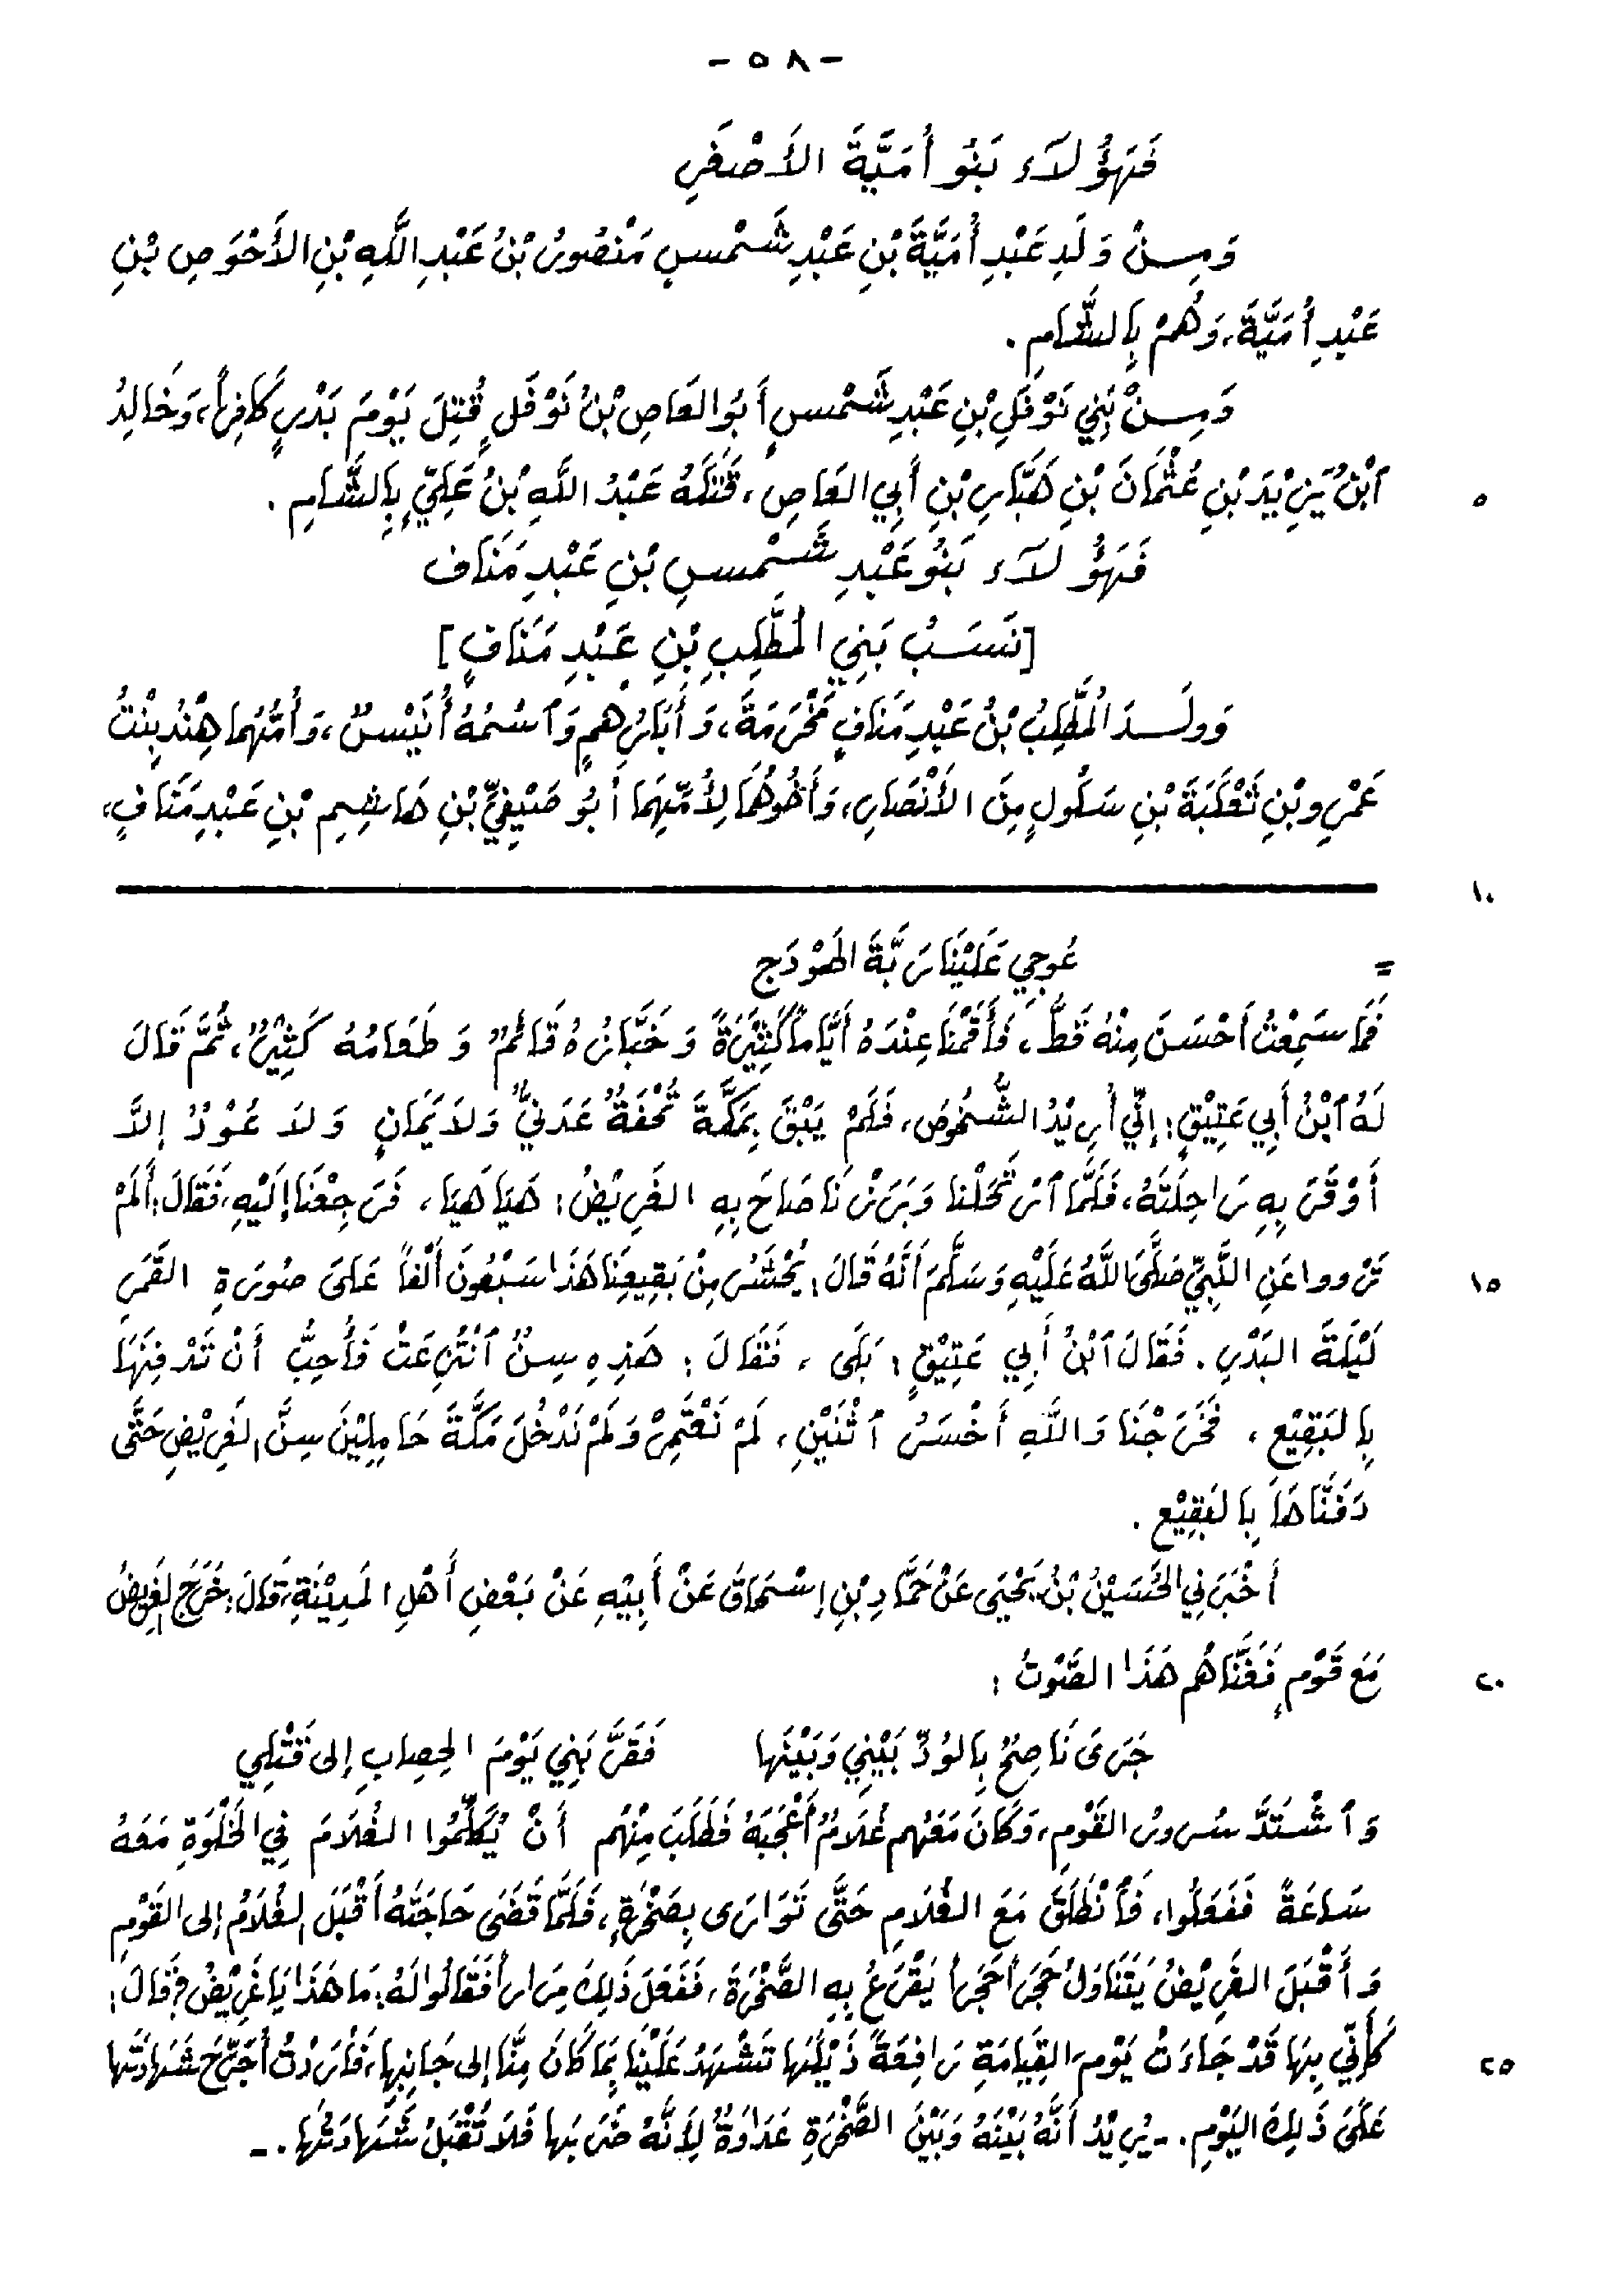 - ٥٨ -
فَهَؤُلَاءِ بَنُو أُمَيَّةَ الأَصْغَرِ
وَمِنْ وَلَدِ عَبْدِ أُمَيَّةَ بْنِ عَبْدِ شَمْسٍ مَنْصُورُ بْنُ عَبْدِ اللَّهِ بْنِ الأَحْوَصِ بْنِ
عَبْدِ أُمَيَّةَ، وَهُمْ بِالشَّامِ .
وَمِنْ بَنِي نَوْفَلِ بْنِ عَبْدِ شَمْسٍ أَبُو العَاصِ بْنُ نَوْفَلٍ قُتِلَ يَوْمَ بَدْرٍ كَافِراً، وَخَالِدُ
ٱبْنُ يَزِيْدَ بْنِ عُثْمَانَ بْنِ هَبَّارِ بْنِ أَبِي العَاصِ، قَتَلَهُ عَبْدُ اللَّهِ بْنُ عَلِيٍّ بِالشَّامِ .
٥
فَهَؤُلَاءِ بَنُو عَبْدِ شَمْسِ بْنِ عَبْدِ مَنَاف
[نَسَبُ بَنِي المُطَّلِبِ بْنِ عَبْدِ مَنَافٍ]
وَوَلَدَ المُطَّلِبُ بْنُ عَبْدِ مَنَافٍ مَخْرَمَةَ، وَأَبَارُهمٍ وَٱسْمُهُ أُنَيْسٌ، وَأُمُّهُمَا هِنْدُ بِنْتُ
عَمْرِو بْنِ ثَعْلَبَةَ بْنِ سَلُولٍ مِنَ الأَنْصَارِ، وَأَخُوهُمَا لِأُمِّهِمَا أَبُو صَيْفِيِّ بْنِ هَاشِمِ بْنِ عَبْدِ مَنَافٍ،
١٠
عُوجِي عَلَيْنَا رَبَّةَ الهَوْدَجِ
=
فَمَا سَمِعْتُ أَحْسَنَ مِنْهُ قَطُّ، فَأَقَمْنَا عِنْدَهُ أَيَّاماً كَثِيْرَةً وَخَبَّازُهُ قَائِمٌ وَطَعَامُهُ كَثِيْرٌ، ثُمَّ قَالَ
لَهُ ٱبْنُ أَبِي عَتِيْقٍ: إِنِّي أُرِيْدُ الشُّخُوصَ، فَلَمْ يَبْقَ بِمَكَّةَ تُحْفَةُ عَدَنِيٍّ وَلَا يَمَانٍ وَلَا عُوْدٌ إلاَّ
أَوْقَرَ بِهِ رَاحِلَتَهُ، فَلَمَّا ٱرْتَحَلْنَا وَبَرَزْنَا صَاحَ بِهِ الغَرِيْضُ: هَيَا هَيَا، فَرَجِعْنَا إلَيْهِ، فَقَالَ: أَلَمْ
تَرْووا عَنِ النَّبِيِّ صَلَّى اللَّهُ عَلَيْهِ وَسَلَّمَ أَنَّهُ قَالَ: يُحْشَرُ مِنْ بَقِيعِنَا هَذَا سَبْعُونَ أَلْفاً عَلَى صُورَةِ القَمَرِ
١٥
لَيْلَةَ البَدْرِ. فَقَالَ ٱبْنُ أَبِي عَتِيْقٍ: بَلَى، فَقَالَ: هَذِهِ سِنٌّ ٱنْتُزِعَتْ فَأُحِبُّ أَنْ تَدْفِنَهَا
بِالبَقِيْعِ، فَخَرَجْنَا وَاللَّهِ أَخْسَرُ ٱثْنَيْنِ، لَمْ نَعْتَمِرْ وَلَمْ نَدْخُلَ مَكَّةَ حَامِلِيْنَ سِنَّ الغَرِيْضِ حَتَّى
دَفَنَّاهَا بِالبَقِيْعِ .
أَخْبَرَنِي الحُسَيْنُ بْنُ يَحْيَى عَنْ حَمَّادِ بْنِ إسْحَاقَ عَنْ أَبِيْهِ عَنْ بَعْضِ أَهْلِ المَدِيْنَةِ، قَالَ: خَرَجَ الغَرِيضُ
مَعَ قَوْمٍ فَغَنَّاهُم هَذَا الصَّوْتُ :
٢٠
جَرَى نَاصِحٌ بِالوُدِّ بَيْنِي وَبَيْنَهَا فَقَرَّبَنِي يَوْمَ الحِصَابِ إلى قَتْلِي
وَٱشْتَدَّ سُرورُ القَوْمِ، وَكَانَ مَعَهُم غُلَامٌ أَعْجَبَهُ فَطَلَبَ مِنْهُم أَنْ يُكَلِّمُوا الغُلَامَ فِي الخَلْوَةِ مَعَهُ
سَاعَةً فَفَعَلُوا، فَٱنْطَلَقَ مَعَ الغُلَامِ حَتَّى تَوَارَى بِصَخْرَةٍ، فَلَمَّا قَضَى حَاجَتَهُ أَقْبَلَ الغُلَامُ إلى القَوْمِ
وَأَقْبَلَ الغَرِيْضُ يَتَنَاوَلُ حَجَراً حَجَراً يَقْرَعُ بِهِ الصَّخْرَةَ، فَفَعَلَ ذَلِكَ مِرَاراً فَقَالُوا لَهُ: مَا هَذَا يَا غَرِيْضُ؟ فَقَالَ:
كَأَنِّي بِهَا قَدْ جَاءَتْ يَوْمَ القِيَامَةِ رَافِعَةً ذَيْلَهَا تَشْهَدُ عَلَيْنَا بِمَا كَانَ مِنَّا إلى جَانِبِهَا، فَأَرَدْتُ أُجَرِّحَ شَهَادَتَها
٢٥
عَلَى ذَلِكَ اليَوْمِ. - يُرِيْدُ أَنَّهُ بَيْنَهُ وَبَيْنَ الصَّخْرَةِ عَدَاوَةٌ لِأَنَّهُ ضَرَبَها فَلَا تُقْبَلُ شَهَادَتُهَا. -